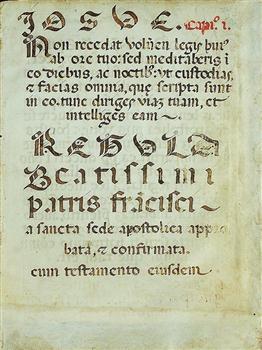 IOSVE. Cap. 1.
Non recedat volumen legis huius
ab ore tuo: sed meditaberis i
eo diebus, ac noctib: vt custodias,
& facias omnia, que scripta sunt
in eo. tunc diriges viaz tuam, et
intelliges eam ~
REGVLA
Beatissimi
patris fracisci ~
a sancta sede apostolica appro
bata, & confirmata.
cum testamento eiusdem